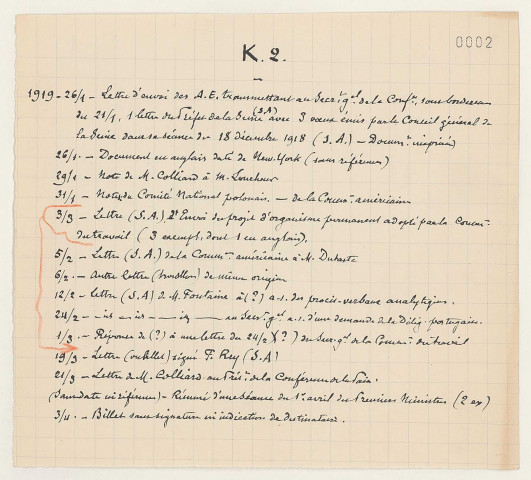 0002
K. 2.
1919 - 26/1 - Lettre d'envoi des A.E. transmettant au Secr.t g.al de la Conf.ce, sous bordereau
du 21/1, 1 lettre du Préfet de la Seine (S.A) avec 3 vœux émis par le Conseil général de
la Seine dans sa séance du 18 Décembre 1918 (S.A.) - Docum.t imprimé
26/1. - Document en anglais daté de New-York (sans référence)
29/1 - Note de M. Colliard à M. Loucheur
31/1 - Note du Comité National polonais. - de la Comm.on américaine
3/3 - Lettre (S.A.) 2e Envoi du projet d'organisme permanent adopté par la Comm.on
du travail (3 exempl. dont 1 en anglais).
5/2 - Lettre (S.A.) de la Comm.on américaine à M. Dutasta
6/2. - Autre lettre (brouillon) de même origine
12/2 - Lettre (S.A) de M. Fontaine à (?) a.s. des procès-verbaux analytiques.
24/2 - id - id - id - au Secr.t g.al a.s. d'une demande de la Délég.on portugaise.
1/3. - Réponse de (?) à une lettre du 24/2 (?) du Secr.t g.al de la Comm.on du travail
19/3 - Lettre (ou billet) signé P. Rey (S.A)
21/3 - Lettre de M. Colliard au Prés.t de la Conférence de la Paix
(Sans date ni référence) - Résumé d'une Séance du 1er avril des Premiers Ministres (2 ex)
3/4. - Billet sans signature ni indication de destinataire.